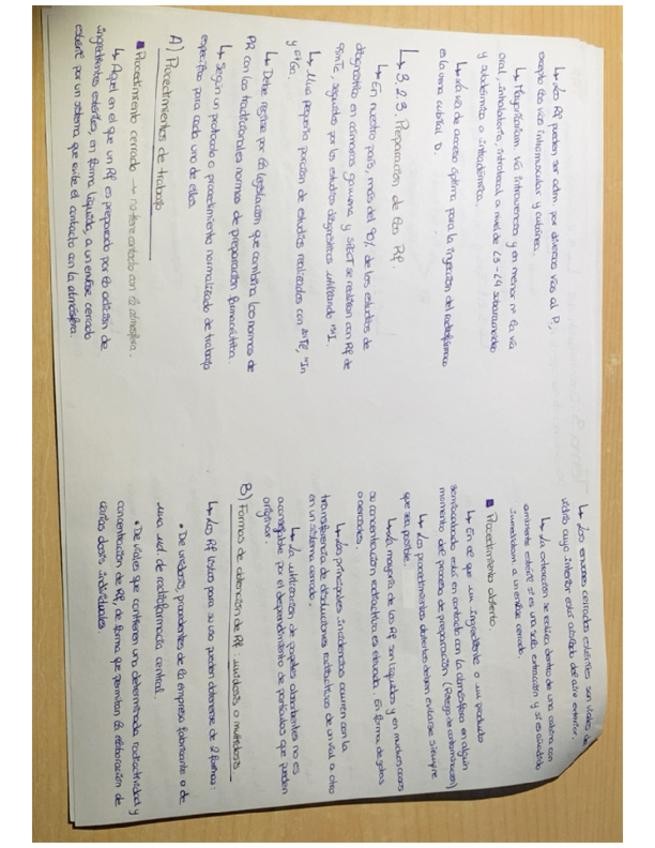 ↳ Los RF pueden ser adm. por diversas vías al P.,
excepto las vías intramuscular y cutánea.
↳ Mayoritariam. vía intravenosa y en menor nº la vía
oral, inhalatoria, intratecal a nivel de L3-L4 subaracnoideo
y subdérmica o intradérmica.
↳ La vía de acceso óptima para la inyección del radiofármaco
es la vena cubital D.
↳ 3.2.3. Preparación de los RF.
↳ En nuestro país, más del 90% de los estudios de
diagnóstico en cámaras gamma y SPECT se realizan con RF de
99mTc, seguidos por los estudios diagnósticos utilizando I.
↳ Una pequeña porción de estudios realizados con In
y Ga.
↳ Debe regirse por la legislación que combina las normas de
PR con las tradicionales normas de preparación farmacéutica.
↳ Según un protocolo o procedimiento normalizado de trabajo
específico para cada uno de ellos.
A) Procedimientos de trabajo
■ Procedimiento cerrado → no tiene contacto con la atmósfera.
↳ Aquel en el que un RF es preparado por la adición de
ingredientes estériles, en forma líquida, a un envase cerrado
estéril por un sistema que evite el contacto con la atmósfera.
↳ Los envases cerrados estériles son viales de
vidrio cuyo interior está aislado del aire exterior.
↳ La extracción se realiza dentro de una cabina con
ambiente estéril si es una sola extracción y si es
a un envase cerrado.
■ Procedimiento abierto.
↳ En el que un ingrediente o un producto
semiacabado está en contacto con la atmósfera en algún
momento del proceso de preparación (Riesgo de contaminación)
↳ Los procedimientos abiertos deben evitarse siempre
que sea posible.
↳ La mayoría de los RF son líquidos y en muchos casos
su concentración radiactiva es elevada. En forma de gotas
o aerosoles.
↳ Los principales incidencias ocurren con la
transferencia de disoluciones radiactivas de un vial a otro
en un sistema cerrado.
↳ La utilización de papeles absorbentes no es
aconsejable por el desprendimiento de partículas que pueden
originar.
B) Formas de obtención de RF: unidosis o multidosis
↳ Los RF listos para su uso pueden obtenerse de 2 formas:
• De unidosis, procedentes de la empresa fabricante o de
una ud. de radiofarmacia central.
• De viales que contienen una determinada radiactividad y
concentración de RF, de forma que permitan la elaboración de
varias dosis individuales.